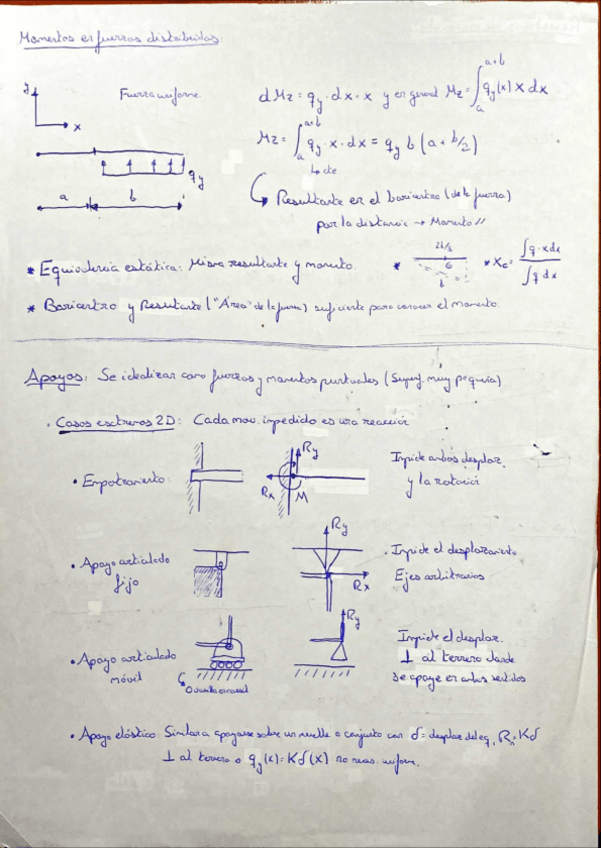 Momentos esfuerzos distribuidos:
y
x
Fuerza uniforme.
a
b
q_y
dMz = q_y · dx · x y en general Mz = ∫_a^{a+b} q_y(x) x dx
Mz = ∫_a^{a+b} q_y · x · dx = q_y b (a + b/2)
↳ cte
↳ Resultante en el baricentro (de la fuerza)
por la distancia → Momento //
* Equivalencia estática: Misma resultante y momento.
*
2b/3
G
b
* x_c = ∫q·xdx / ∫q dx
* Baricentro y Resultante ("Área" de la fuerza) suficiente para conocer el momento.
Apoyos: Se idealizan como fuerzas y momentos puntuales (Superf. muy pequeña)
· Casos extremos 2D: Cada mov. impedido es una reacción
• Empotramiento:
Ry
Rx
M
Impide ambos desplaz.
y la rotación
• Apoyo articulado
fijo
Ry
Rx
· Impide el desplazamiento
Ejes arbitrarios
• Apoyo articulado
móvil
Ry
Impide el desplaz.
⊥ al terreno donde
se apoye en ambos sentidos
• Apoyo elástico: Similar a apoyarse sobre un muelle o conjunto con δ = desplaz. del eq. R_n = Kδ
⊥ al terreno o q_y(x) = Kδ(x) no reac. uniform.